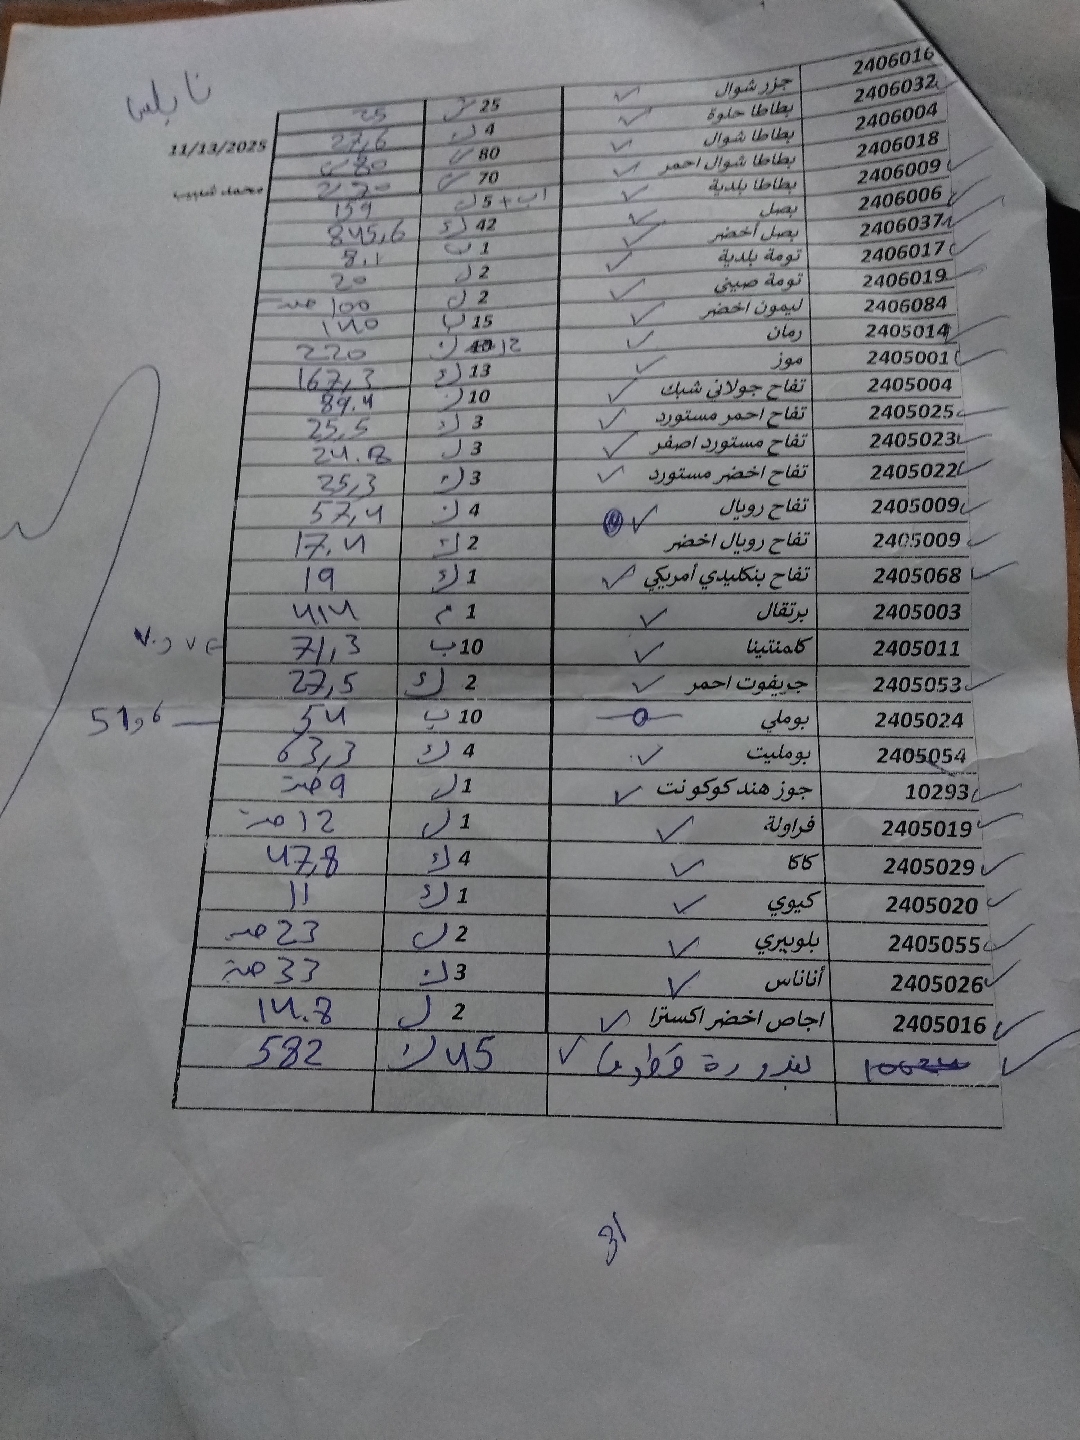 نابلس
11/13/2025
محمد شبيب
2406016 جزر شوال ✓ 25 ك 25
2406032 بطاطا حلوة ✓ 4 ك 27,6
2406004 بطاطا شوال ✓ 80 80
2406018 بطاطا شوال احمر ✓ 70 70
2406009 بطاطا بلدية ✓ 5 ك + 1 ب 159
2406006 بصل ✓ 42 ك 845,6
2406037 بصل أخضر ✓ 1 ب 8,1
2406017 تومة بلدية ✓ 2 ل 20
2406019 تومة صيني ✓ 2 ل 100
2406084 ليمون اخضر ✓ 15 ب 140
2405014 رمان ✓ 12 ك 220
2405001 موز ✓ 13 ك 167,3
2405004 تفاح جولاني شبك ✓ 10 ك 89.4
2405025 تفاح احمر مستورد ✓ 3 ك 25,5
2405023 تفاح مستورد اصفر ✓ 3 ل 24.8
2405022 تفاح اخضر مستورد ✓ 3 ك 25,3
2405009 تفاح رويال ✓ 4 ك 57,4
2405009 تفاح رويال اخضر 2 ك 17,4
2405068 تفاح بنكليدي أمريكي ✓ 1 ك 19
2405003 برتقال ✓ 1 م 414
2405011 كلمنتينا ✓ 10 ب 71,3
2405053 جريفوت احمر ✓ 2 ك 27,5
2405024 بوملي 10 ب 54 51,6
2405054 بومليت ✓ 4 ك 63,3
10293 جوز هند كوكونت ✓ 1 ل 9
2405019 فراولة ✓ 1 ل 12
2405029 كاكا ✓ 4 ك 47,8
2405020 كيوي ✓ 1 ك 11
2405055 بلوبيري ✓ 2 ل 23
2405026 أناناس ✓ 3 ك 33
2405016 اجاص اخضر اكسترا ✓ 2 ل 14.8
بندورة ✓ 45 ك 582
31